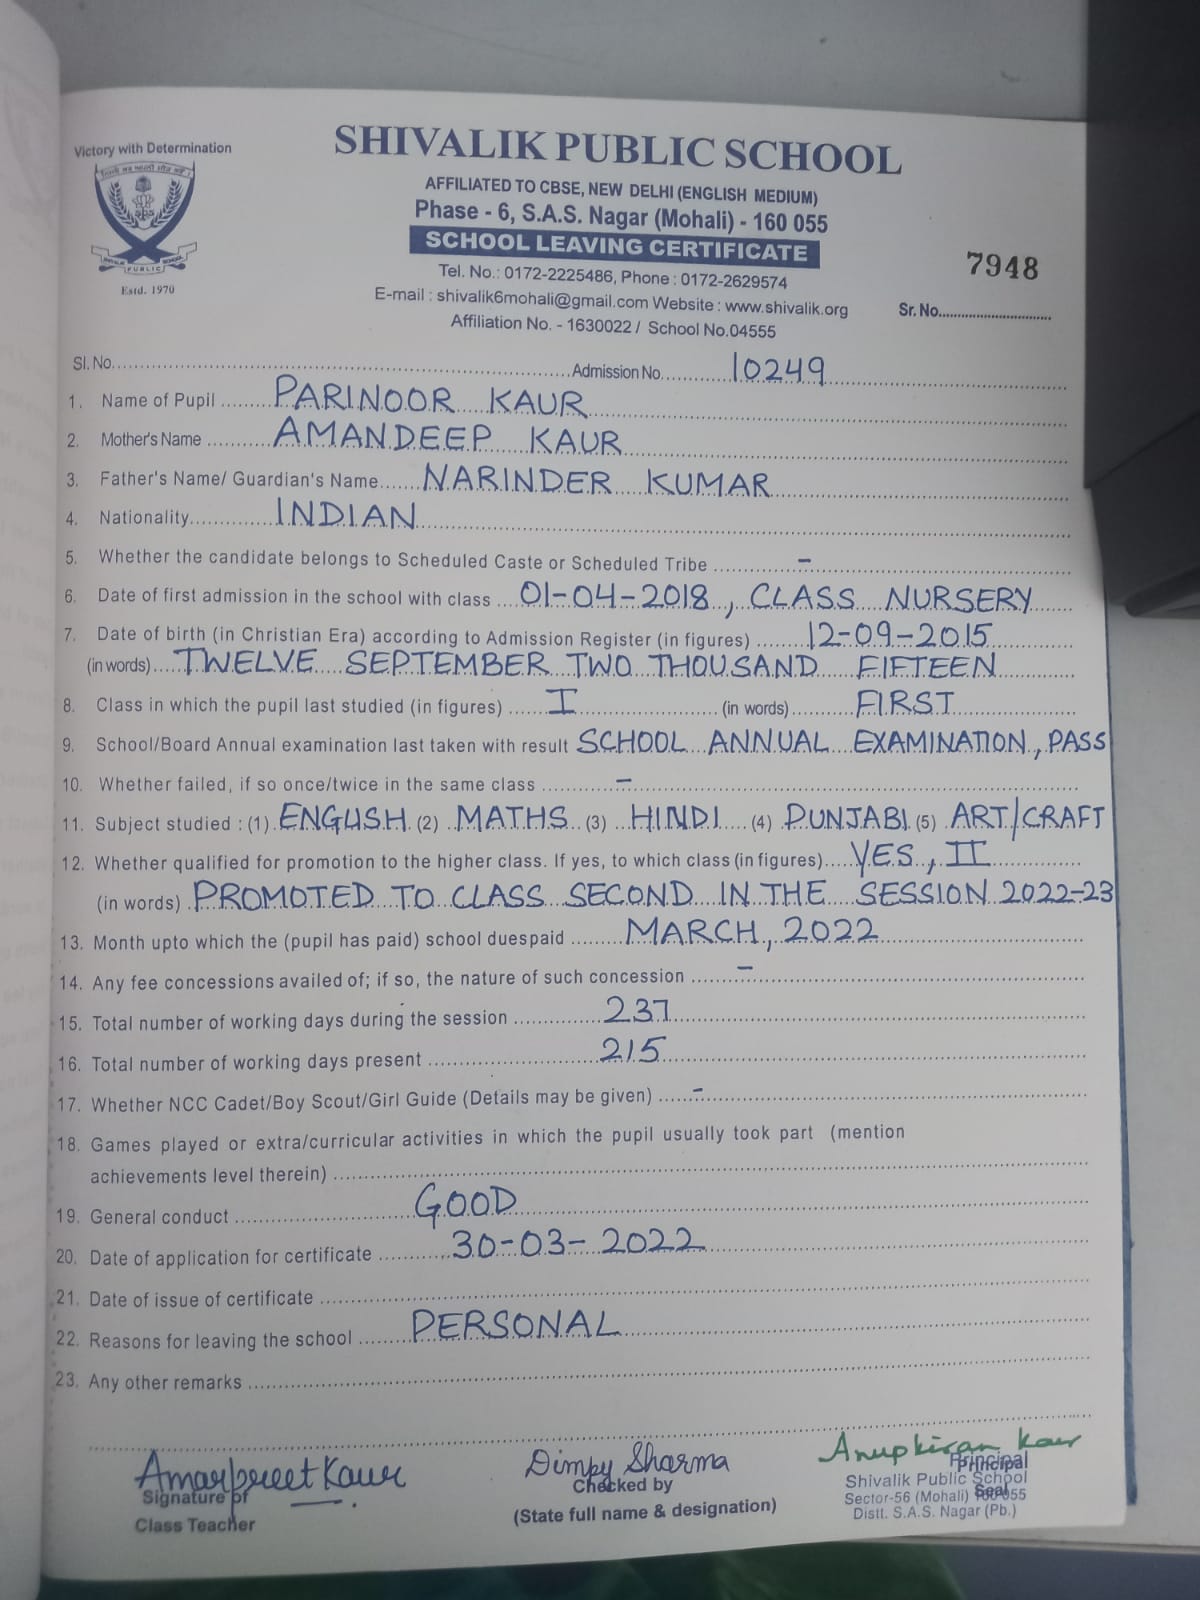 Victory with Determination
SHIVALIK PUBLIC SCHOOL
AFFILIATED TO CBSE, NEW DELHI (ENGLISH MEDIUM)
Phase - 6, S.A.S. Nagar (Mohali) - 160 055
SCHOOL LEAVING CERTIFICATE
Tel. No.: 0172-2225486, Phone : 0172-2629574
E-mail : shivalik6mohali@gmail.com Website : www.shivalik.org
Affiliation No. - 1630022 / School No.04555
SHIVALIK SCHOOL
PUBLIC
Estd. 1970
7948
Sr. No..............................
Sl. No..............................Admission No.......10249
1. Name of Pupil ....... PARINOOR KAUR
2. Mother's Name ....... AMANDEEP KAUR
3. Father's Name/ Guardian's Name....... NARINDER KUMAR
4. Nationality....... INDIAN
5. Whether the candidate belongs to Scheduled Caste or Scheduled Tribe ....... -
6. Date of first admission in the school with class ....01-04-2018, CLASS NURSERY
7. Date of birth (in Christian Era) according to Admission Register (in figures) .......12-09-2015
(in words).... TWELVE SEPTEMBER TWO THOUSAND FIFTEEN
8. Class in which the pupil last studied (in figures) ...... I .......(in words)....... FIRST
9. School/Board Annual examination last taken with result SCHOOL ANNUAL EXAMINATION, PASS
10. Whether failed, if so once/twice in the same class ....... -
11. Subject studied : (1) ENGLISH (2) MATHS (3) HINDI (4) PUNJABI (5) ART/CRAFT
12. Whether qualified for promotion to the higher class. If yes, to which class (in figures).... YES, II
(in words) PROMOTED TO CLASS SECOND IN THE SESSION 2022-23
13. Month upto which the (pupil has paid) school duespaid ....... MARCH, 2022
14. Any fee concessions availed of; if so, the nature of such concession ....... -
15. Total number of working days during the session ....... 237
16. Total number of working days present ....... 215
17. Whether NCC Cadet/Boy Scout/Girl Guide (Details may be given) ...... -
18. Games played or extra/curricular activities in which the pupil usually took part (mention
achievements level therein) ..............................
19. General conduct ....... GOOD
20. Date of application for certificate ....... 30-03-2022
21. Date of issue of certificate ..............................
22. Reasons for leaving the school ....... PERSONAL
23. Any other remarks ..............................
Amarpreet Kaur
Signature of
Class Teacher
Dimpy Sharma
Checked by
(State full name & designation)
Anupkiran Kaur
Principal
Principal
Shivalik Public School
Seal
Sector-56 (Mohali) 160 055
Distt. S.A.S. Nagar (Pb.)